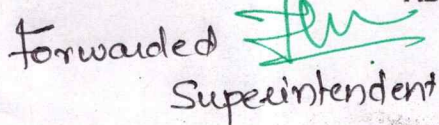 Forwarded
Superintendent